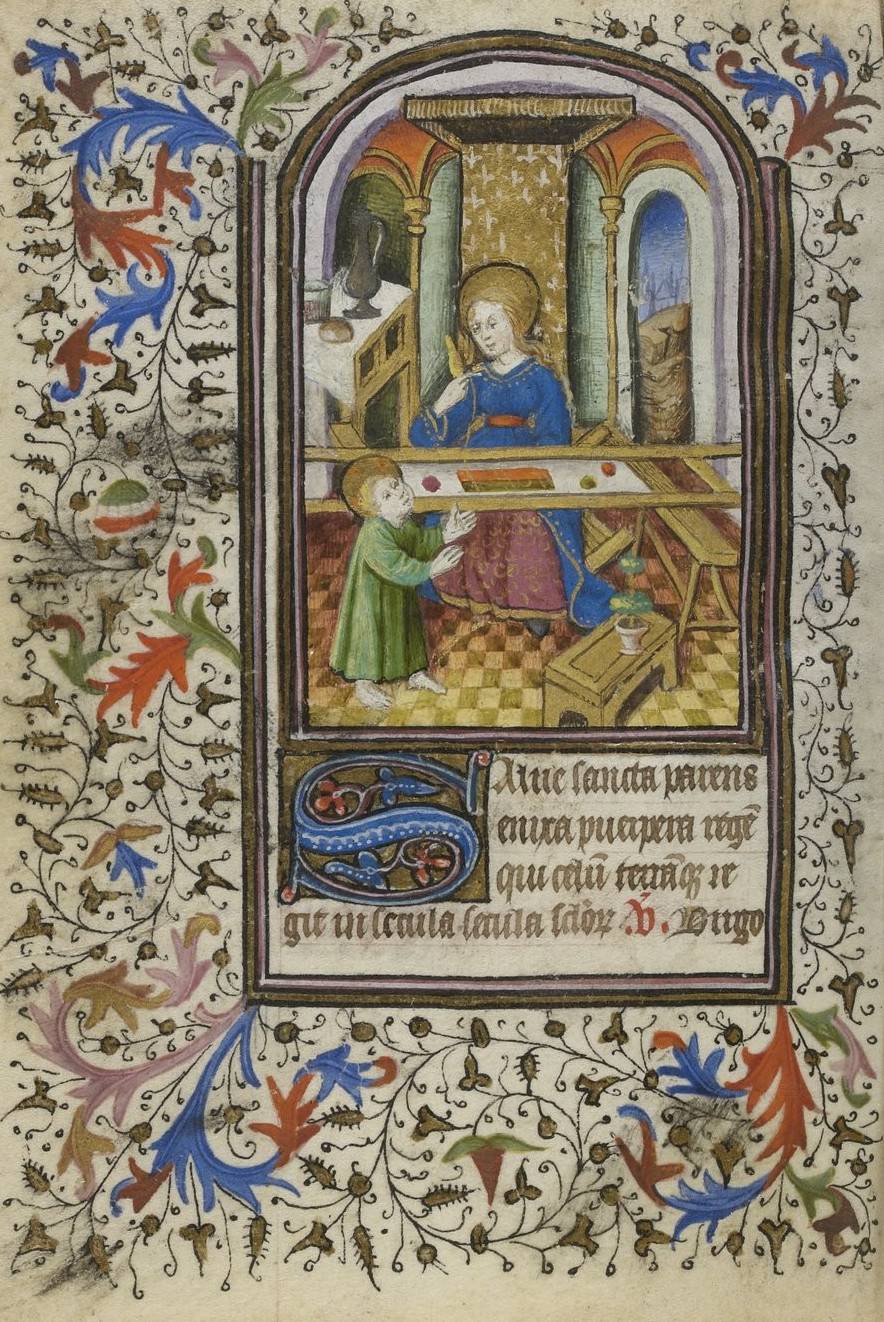 Salue sancta parens
enixa puerpera regē
qui celū terrāqꝫ re
git in secula secula sclōꝝ ℣. Virgo